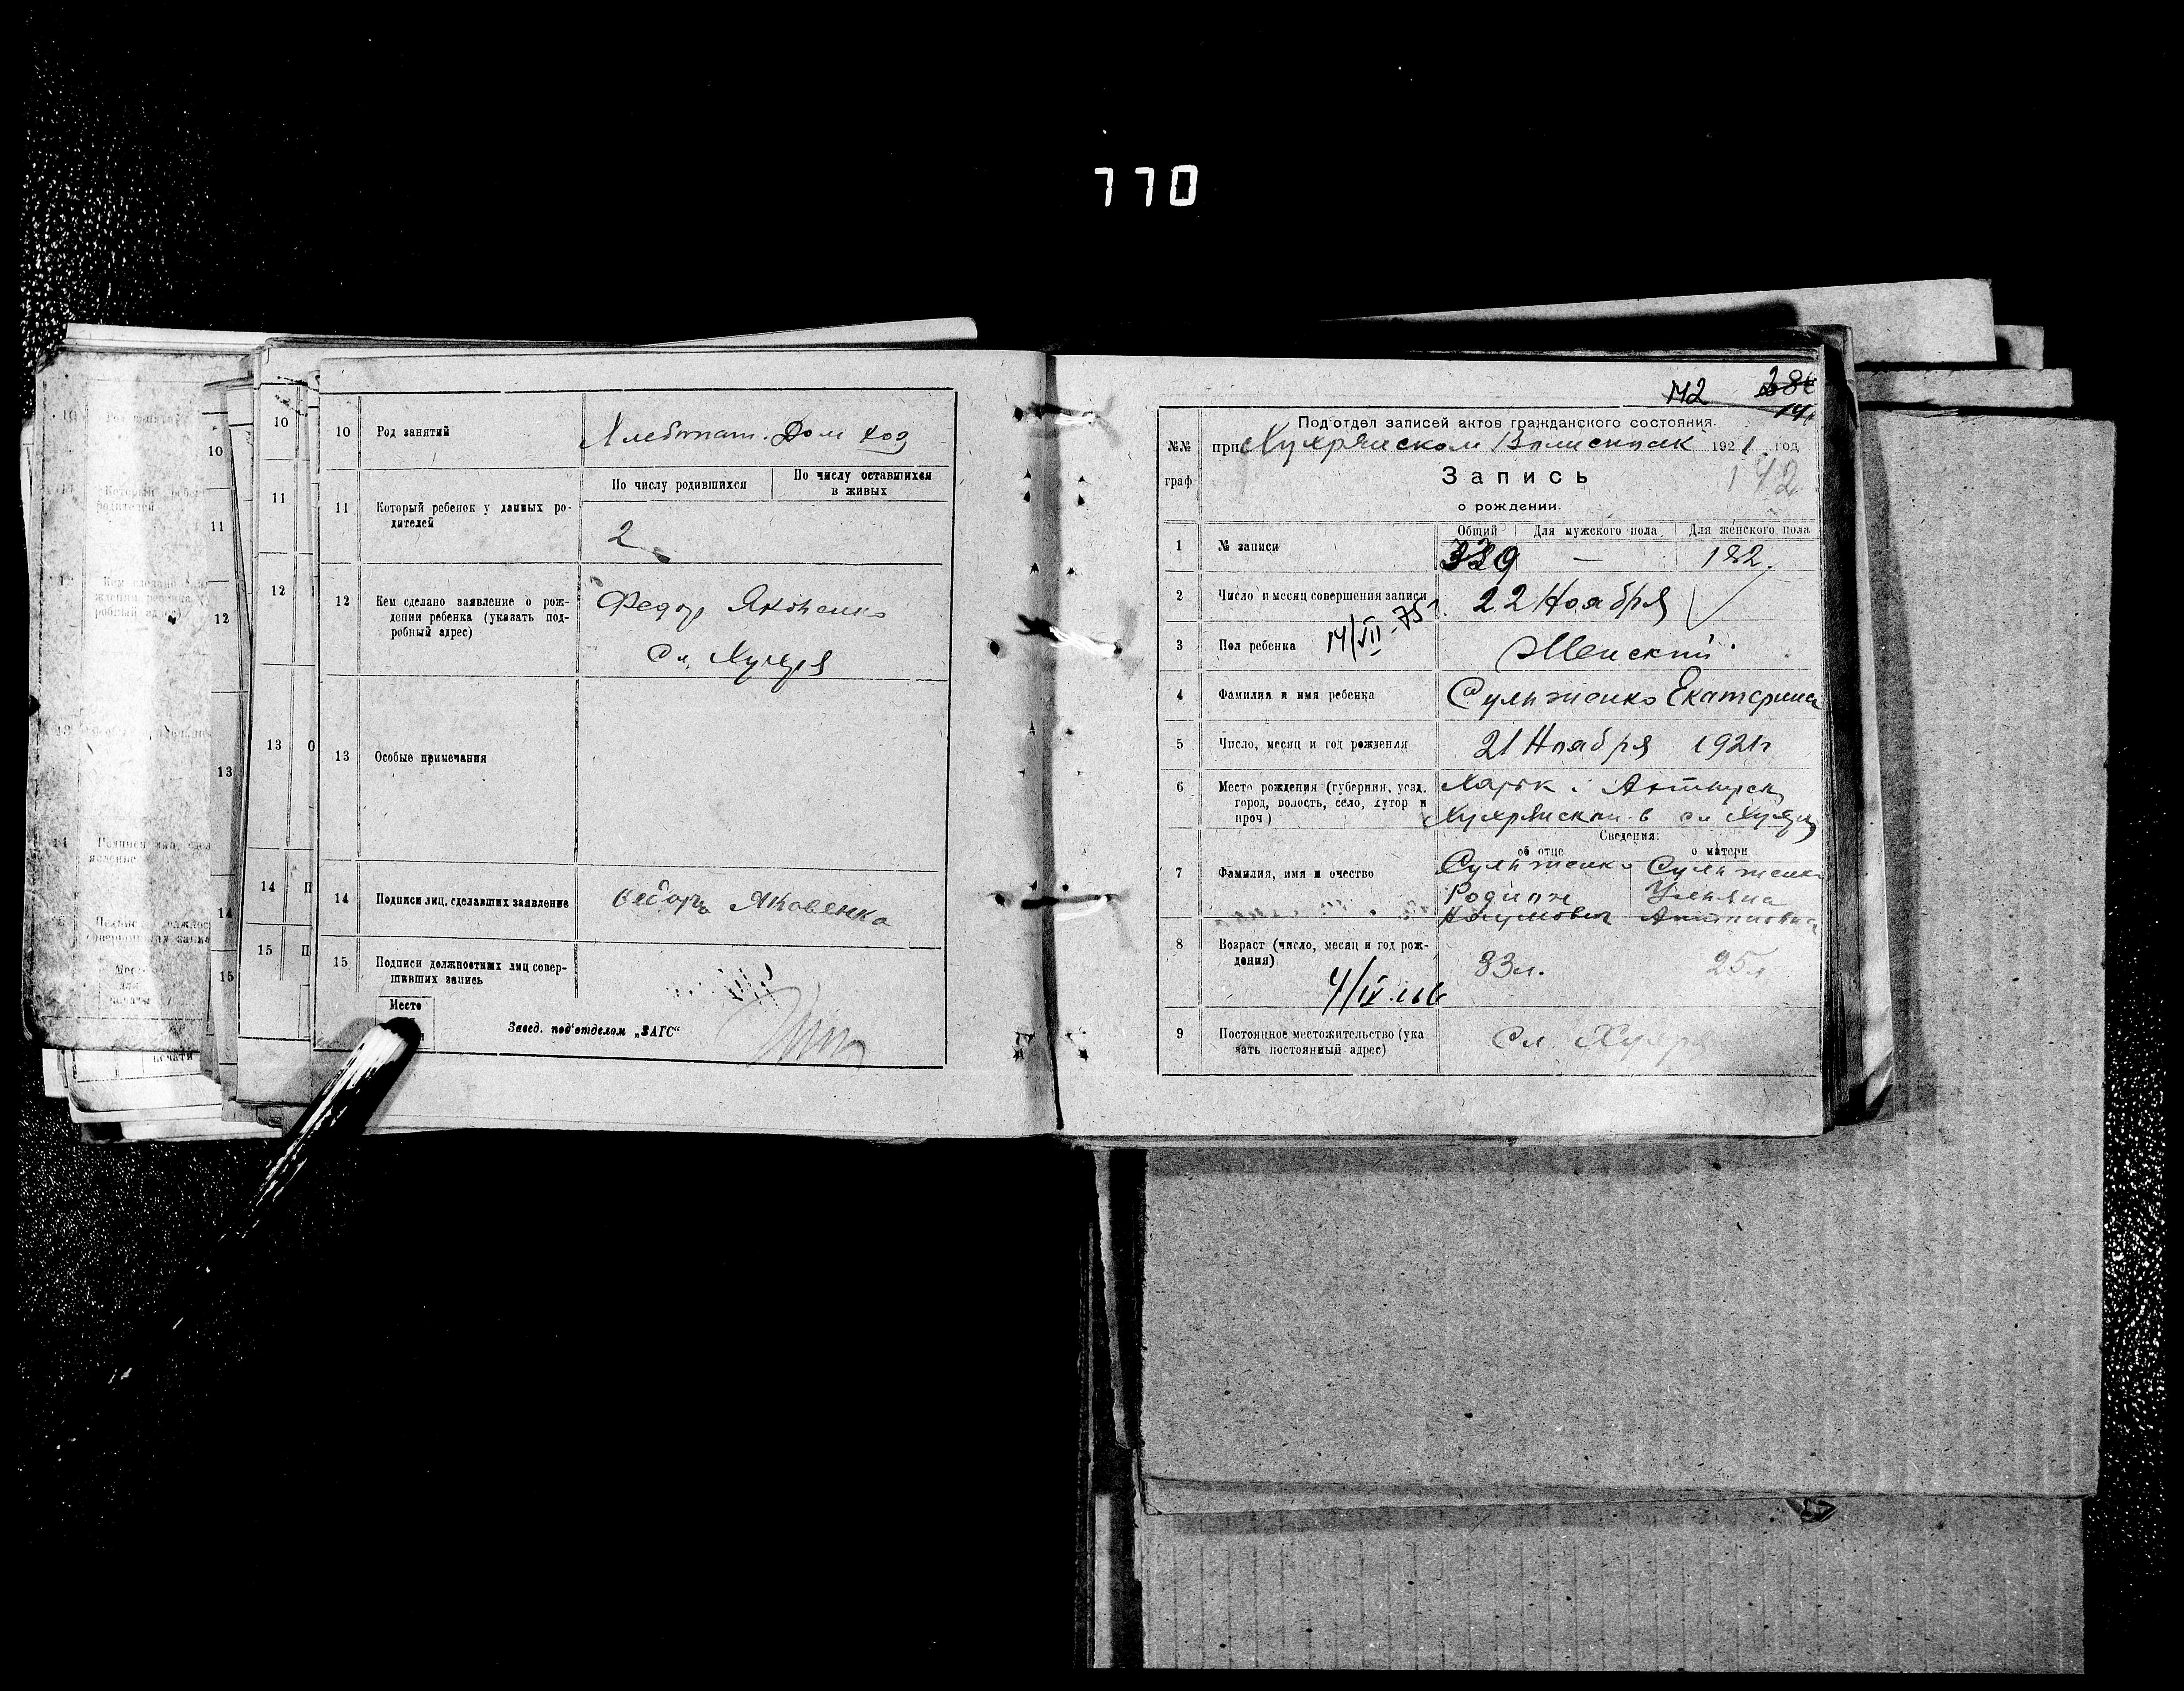 770
10 Род занятий
Хлебопаш. Дом хоз
По числу родившихся
По числу оставшихся
в живых
11 Который ребенок у данных ро-
дителей
2
12 Кем сделано заявление о рож-
дении ребенка (указать под-
робный адрес)
Федор Яковенко
Сл. Хухря
13 Особые примечания
14 Подписи лиц, сделавших заявление
Федоръ Яковенко
15 Подписи должностных лиц совер-
шивших запись
Место
Завед. под'отделом „ЗАГС“
142
Под'отдел записей актов гражданского состояния.
№№ при Хухрянском Волисполк 1921 год
граф
Запись
142
о рождении.
Общий Для мужского пола Для женского пола
1 № записи
339 — 182.
2 Число и месяц совершения записи
22 Ноября
3 Пол ребенка
14/VII-75
Женский
4 Фамилия и имя ребенка
Сульженко Екатерина
5 Число, месяц и год рождения
21 Ноября 1921 г
6 Место рождения (губерния, уезд,
город, волость, село, хутор и
проч)
Харьк. Ахтырск
Хухрянской в сл Хухря
Сведения:
об отце о матери
7 Фамилия, имя и очество
Сульженко Сульженко
Родион Ульяна
Наумович
8 Возраст (число, месяц и год рож-
дения)
33 л. 25 л
9 Постоянное местожительство (ука
зать постоянный адрес)
Сл Хухря
10
11
12
13
14
15
10
11
12
13
14
15